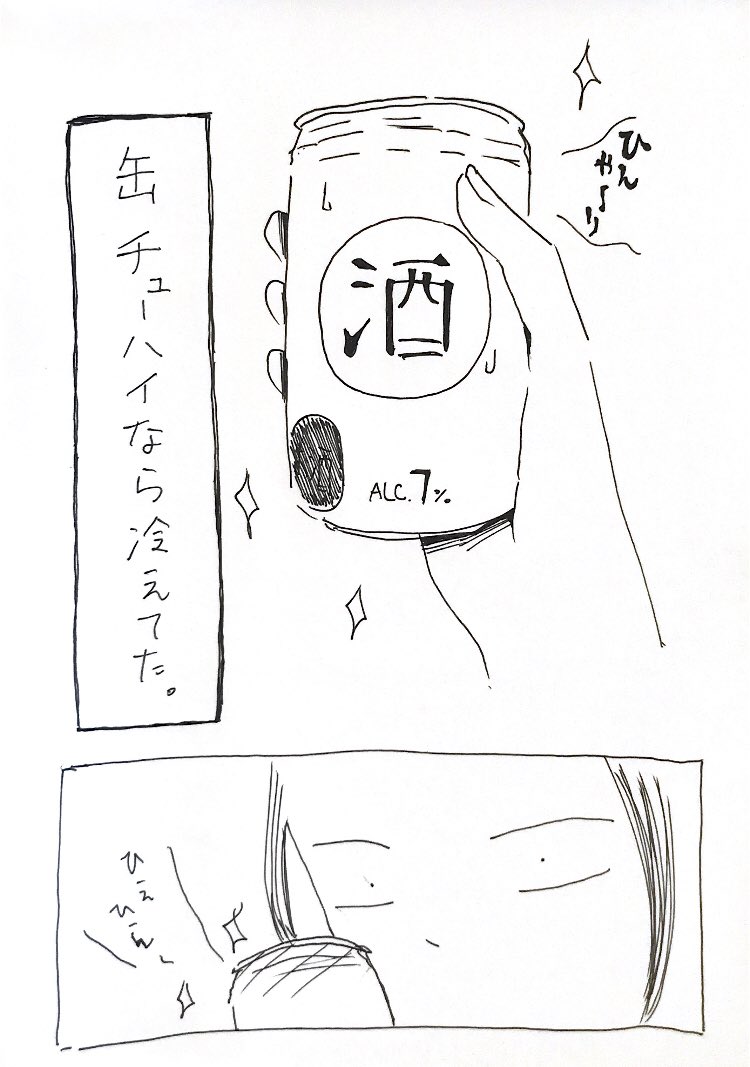 缶チューハイなら冷えてた。
ひんやーり
酒
ALC.7%
ひぇ
ひえん〜